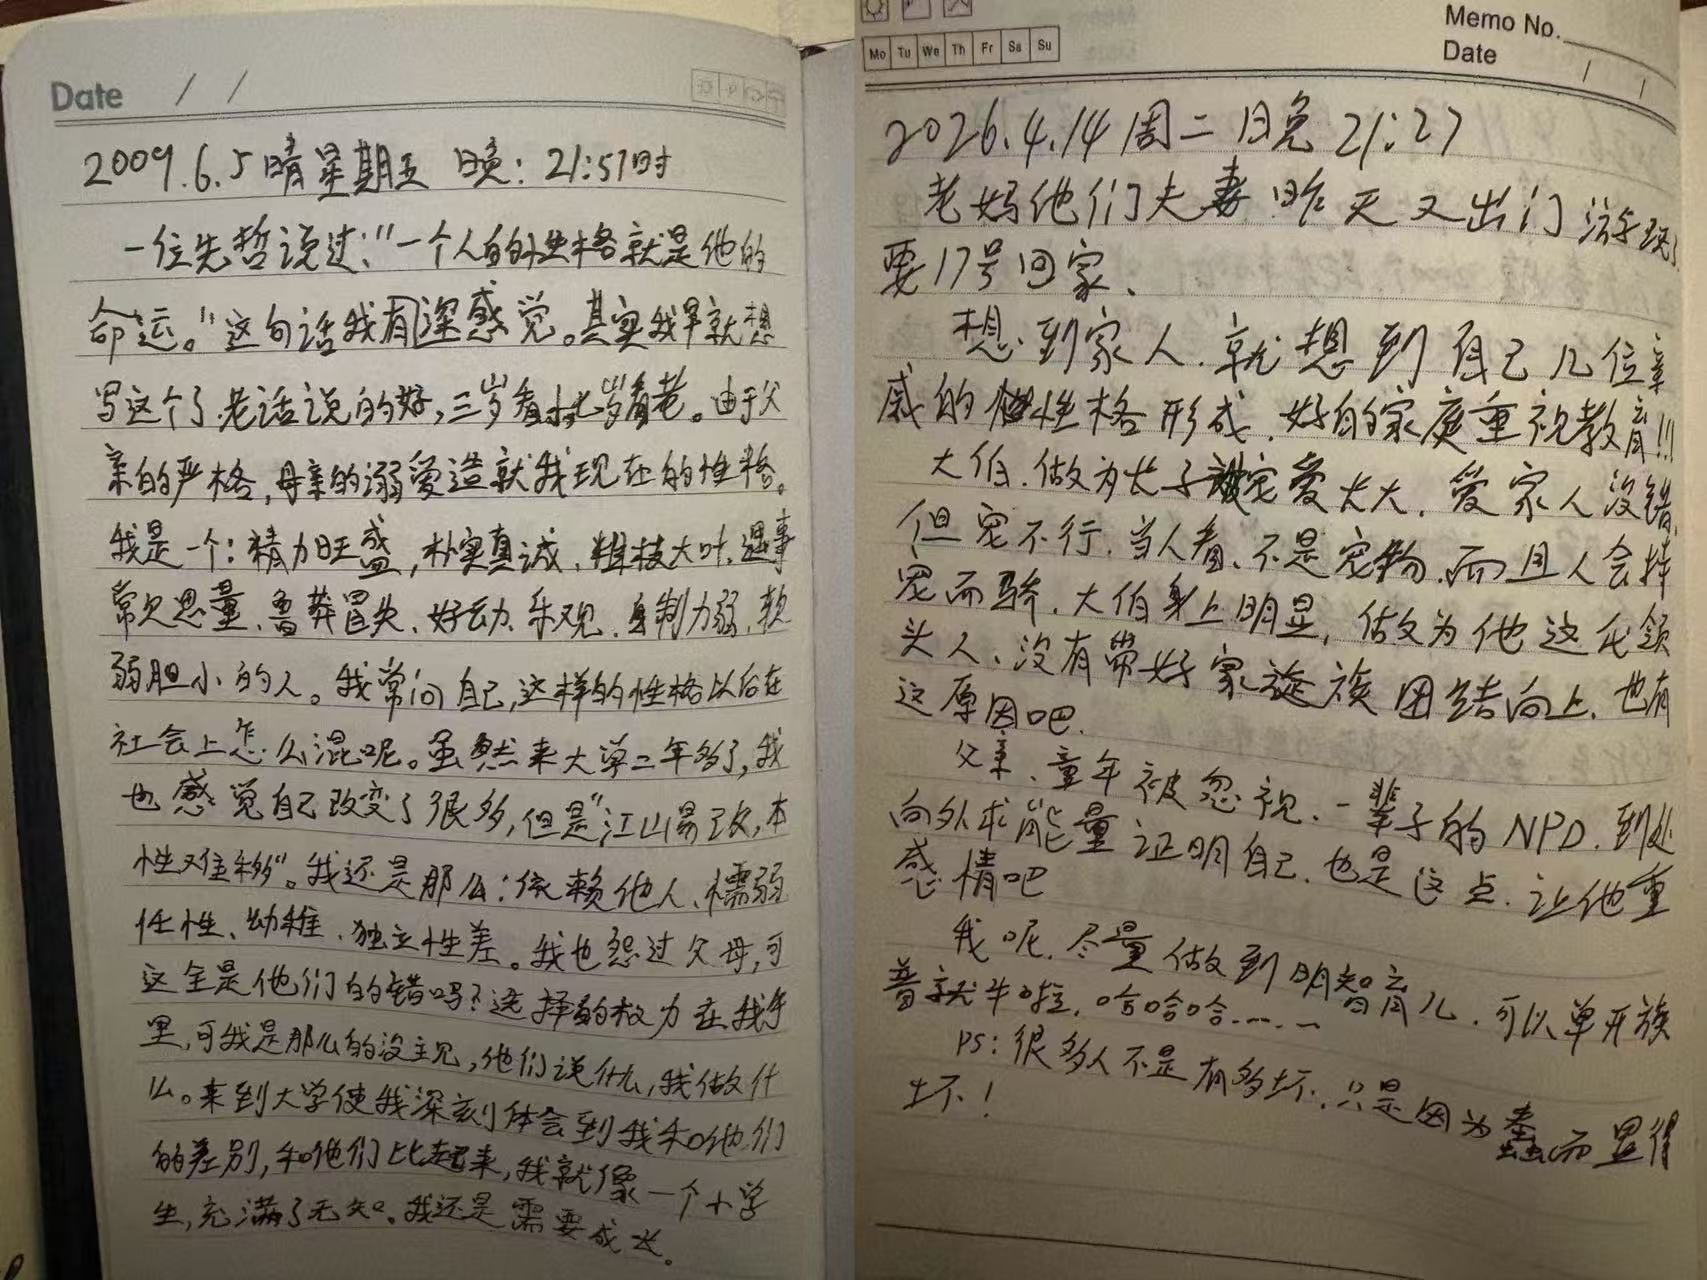 Date / /
2009.6.5 晴 星期五 晚：21:51时
一位先哲说过："一个人的性格就是他的
命运。"这句话我有深感觉。其实我早就想
写这个了。老话说的好，三岁看小七岁看老。由于父
亲的严格，母亲的溺爱造就我现在的性格。
我是一个：精力旺盛，朴实真诚、粗枝大叶、遇事
常欠思量、鲁莽冒失、好动、乐观、自制力弱、软
弱胆小的人。我常问自己，这样的性格以后在
社会上怎么混呢。虽然来大学二年多了，我
也感觉自己改变了很多，但是"江山易改，本
性难移"。我还是那么：依赖他人、懦弱
任性、幼稚、独立性差。我也怨过父母，可
这全是他们的错吗？选择的权力在我手
里，可我是那么的没主见，他们说什么，我做什
么。来到大学使我深刻体会到我和他们
的差别，和他们比起来，我就像一个小学
生，充满了无知。我还是需要成长。
Memo No.
Mo Tu We Th Fr Sa Su
Date / /
2026.4.14 周二 晚 21:27
老妈他们夫妻昨天又出门游玩了
要17号回家、
想到家人、就想到自己几位亲
戚的性格形成、好的家庭重视教育!!!
大伯、做为太子被宠爱太大、爱家人没错、
但宠不行、当人看、不是宠物、而且人会恃
宠而骄、大伯身上明显，做为他这代领
头人、没有带好家族团结向上、也有
这原因吧、
父亲、童年被忽视、一辈子的NPD、到处
向外求能量证明自己、也是这点、让他重
感情吧
我呢、尽量做到明智育儿、可以单开族
普就牛啦，哈哈哈……
PS：很多人不是有多坏、只是因为蠢而显得
坏！